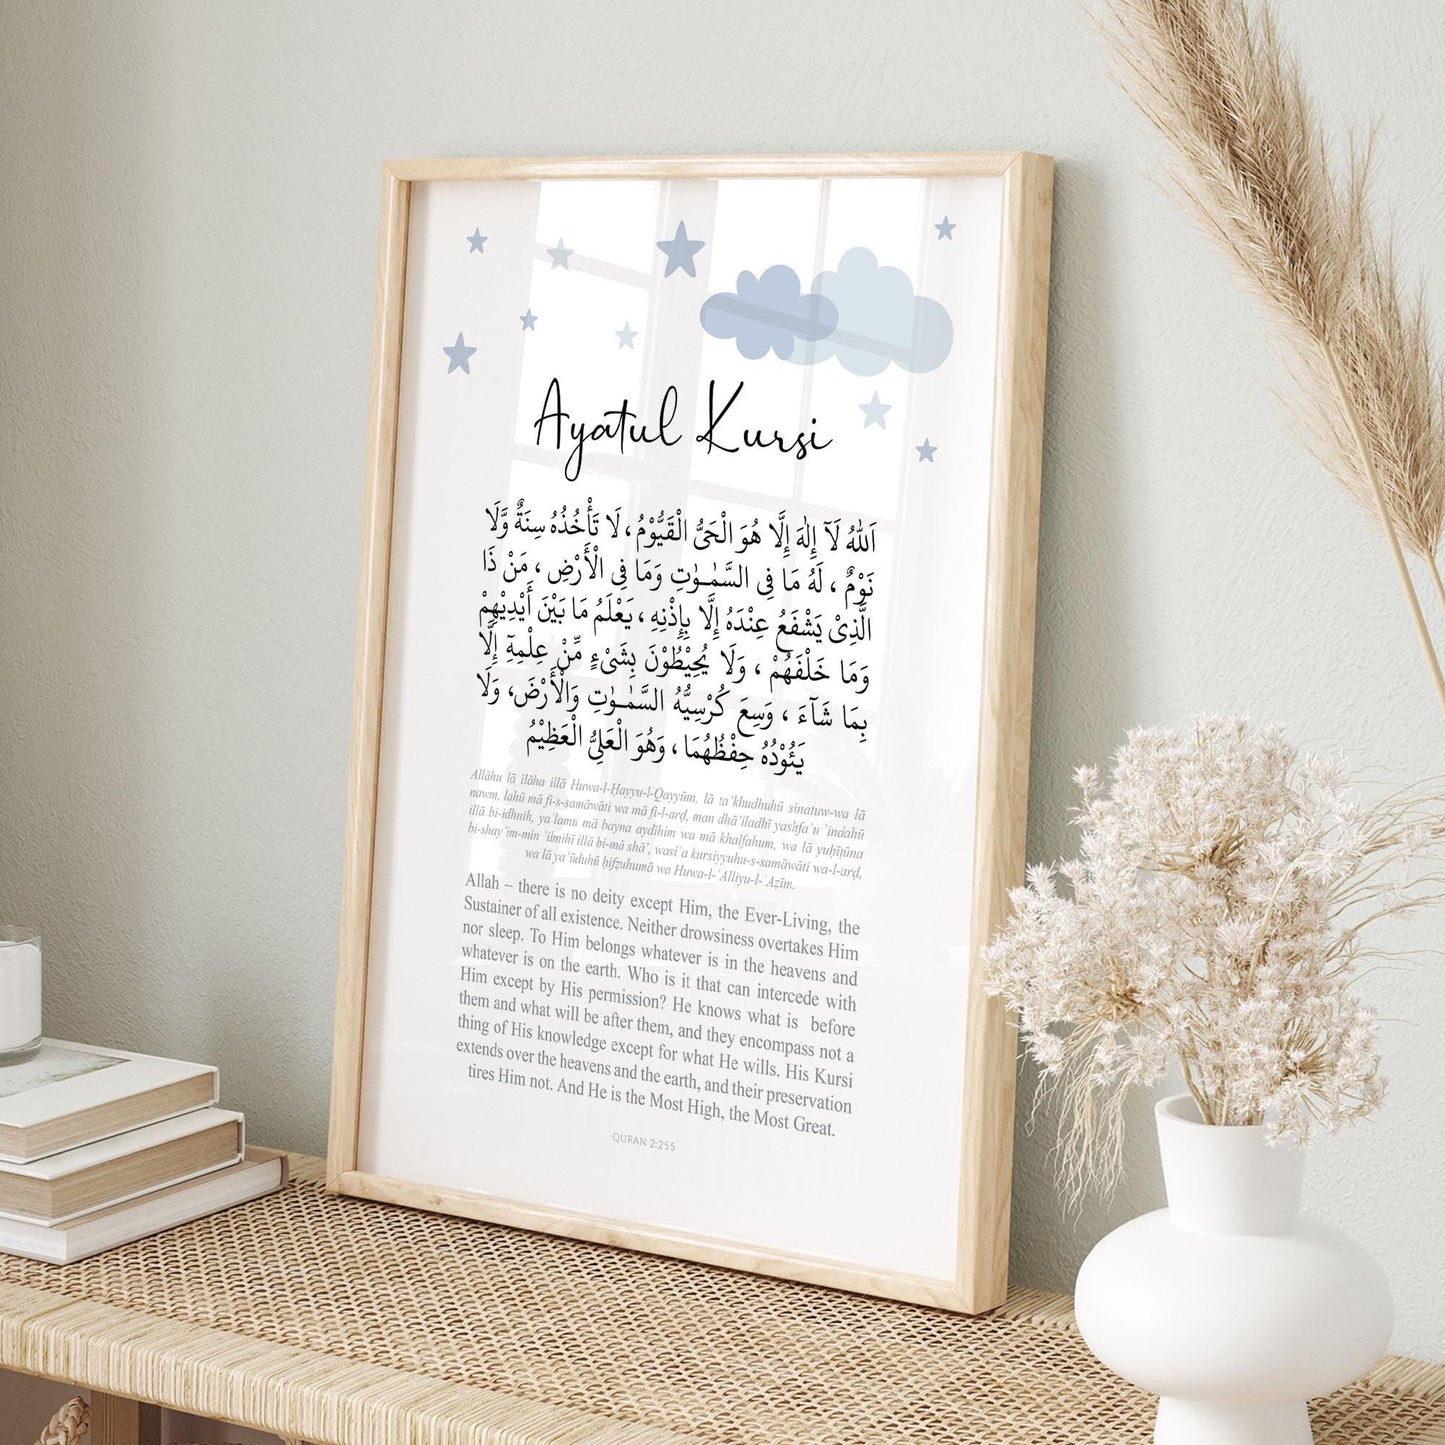 Ayatul Kursi
اَللّٰهُ لَآ إِلٰهَ إِلَّا هُوَ الْحَيُّ الْقَيُّوْمُ، لَا تَأْخُذُهُ سِنَةٌ وَّلَا
نَوْمٌ ، لَهُ مَا فِى السَّمٰوٰتِ وَمَا فِى الْأَرْضِ ، مَنْ ذَا
الَّذِىْ يَشْفَعُ عِنْدَهُ إِلَّا بِإِذْنِهِ ، يَعْلَمُ مَا بَيْنَ أَيْدِيْهِمْ
وَمَا خَلْفَهُمْ ، وَلَا يُحِيْطُوْنَ بِشَىْءٍ مِّنْ عِلْمِهِٓ إِلَّا
بِمَا شَآءَ ، وَسِعَ كُرْسِيُّهُ السَّمٰوٰتِ وَالْأَرْضَ، وَلَا
يَئُوْدُهُ حِفْظُهُمَا ، وَهُوَ الْعَلِىُّ الْعَظِيْمُ
Allāhu lā ilāha illā Huwa-l-Ḥayyu-l-Qayyūm, lā ta'khudhuhū sinatuw-wa lā
nawm, lahū mā fi-s-samāwāti wa mā fi-l-arḍ, man dhā'lladhī yashfaʿu ʿindahū
illā bi-idhnih, yaʿlamu mā bayna aydīhim wa mā khalfahum, wa lā yuḥīṭūna
bi-shay'im-min ʿilmihī illā bi-mā shā', wasiʿa kursiyyuhu-s-samāwāti wa-l-arḍ,
wa lā ya'ūduhū ḥifẓuhumā wa Huwa-l-ʿAlliyu-l-ʿAẓīm.
Allah – there is no deity except Him, the Ever-Living, the
Sustainer of all existence. Neither drowsiness overtakes Him
nor sleep. To Him belongs whatever is in the heavens and
whatever is on the earth. Who is it that can intercede with
Him except by His permission? He knows what is before
them and what will be after them, and they encompass not a
thing of His knowledge except for what He wills. His Kursi
extends over the heavens and the earth, and their preservation
tires Him not. And He is the Most High, the Most Great.
QURAN 2:255